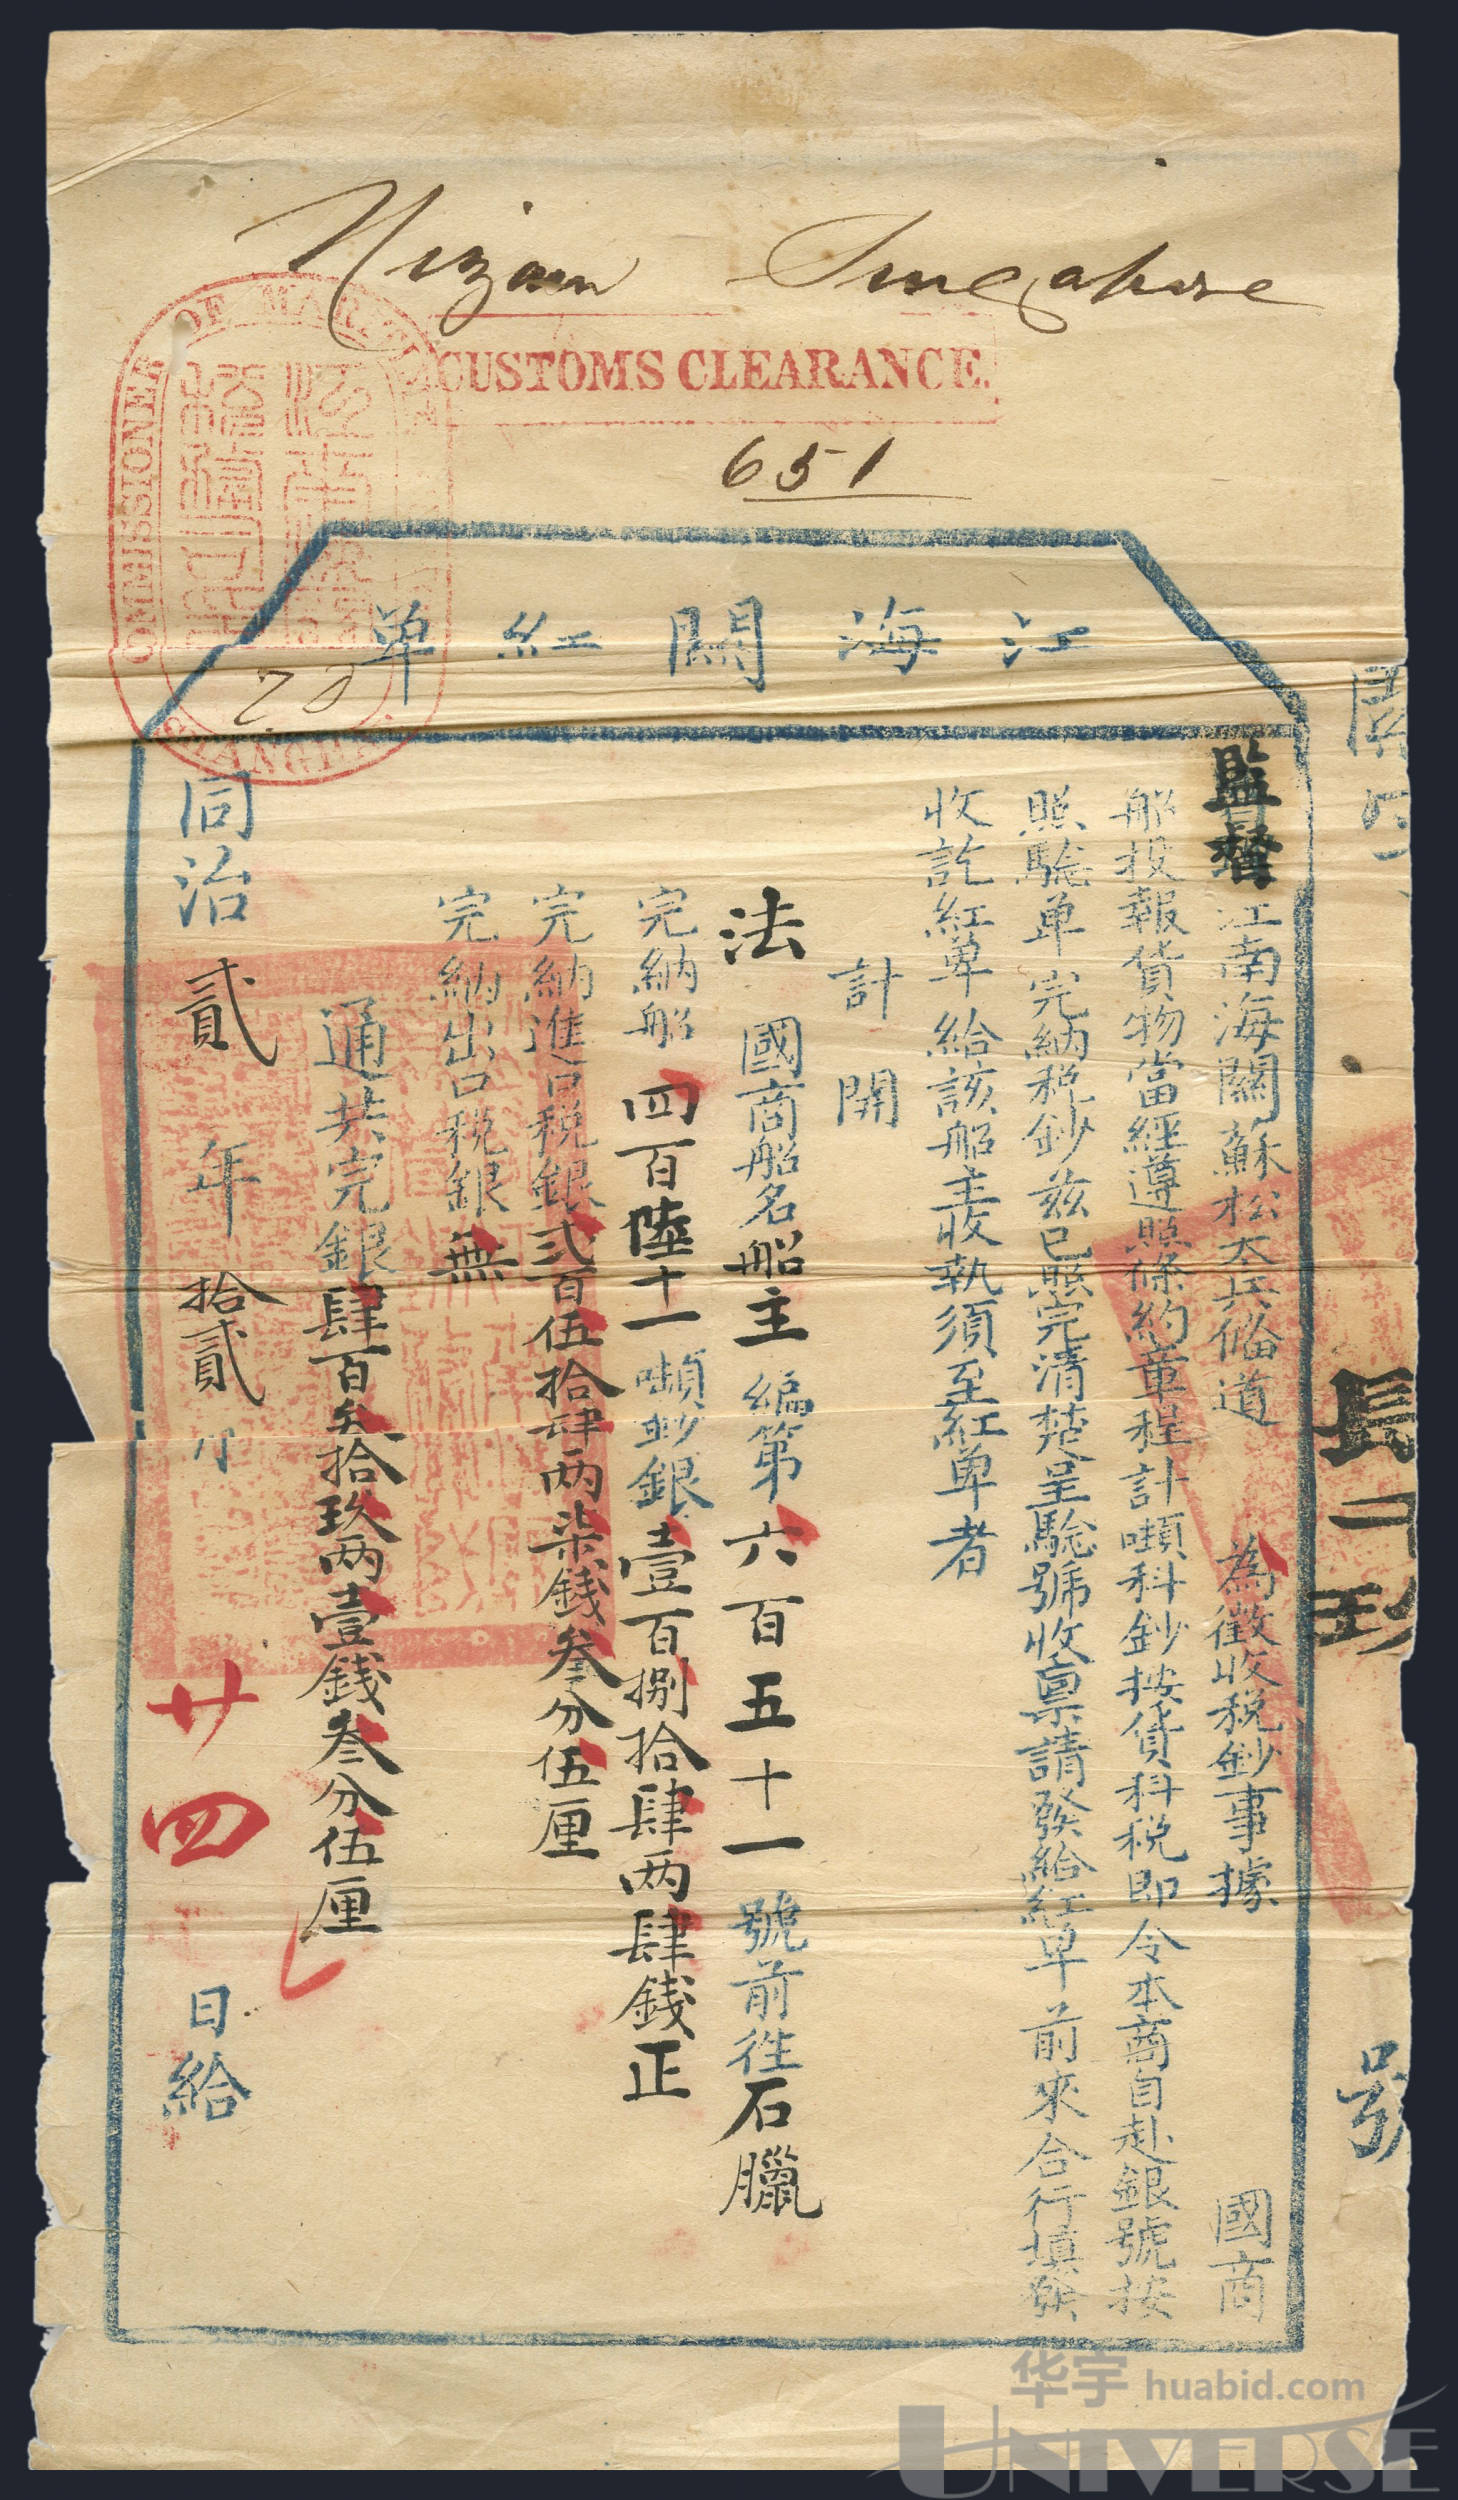 Nizam Singapore
COMMISSIONER OF MARITIME
SHANGHAI
CUSTOMS CLEARANCE.
651
江海關紅單
監督江南海關蘇松太兵備道 為徵收稅鈔事據 國商
船投報貨物當經遵照條約章程計噸科鈔按貨科稅即令本商自赴銀號按
照驗單完納稅鈔茲已照完清楚呈驗號收稟請發給紅單前來合行填發
收訖紅單給該船主收執須至紅單者
計開
法 國商船名船主 編第六百五十一號前往石臘
完納船 四百陸十一噸鈔銀壹百捌拾肆两肆錢正
完納進口稅銀弍百伍拾肆两柒錢叁分伍厘
完納出口稅銀無
通共完銀肆百叁拾玖两壹錢叁分伍厘
同治貳年拾貳月廿四日給
號
华宇 huabid.com
UNIVERSE